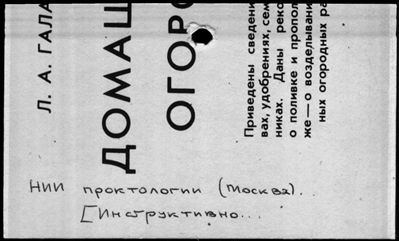 Л. А. ГАЛА
ДОМАШ
ОГОРО
Приведены сведени
вах, удобрениях, сем
никах. Даны реко
о поливке и пропол
же — о возделывани
ных огородных ра
НИИ проктологии (Москва)..
[Инструктивно...